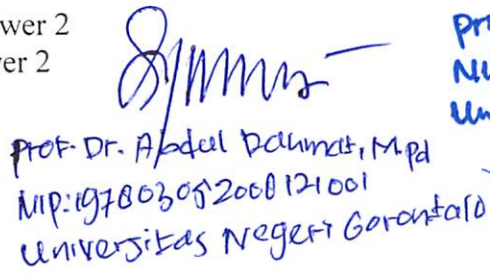 wer 2
er 2
Prof. Dr. Abdul Rahmat, M.Pd
NIP: 197803052008121001
Universitas Negeri Gorontalo
pr
Un